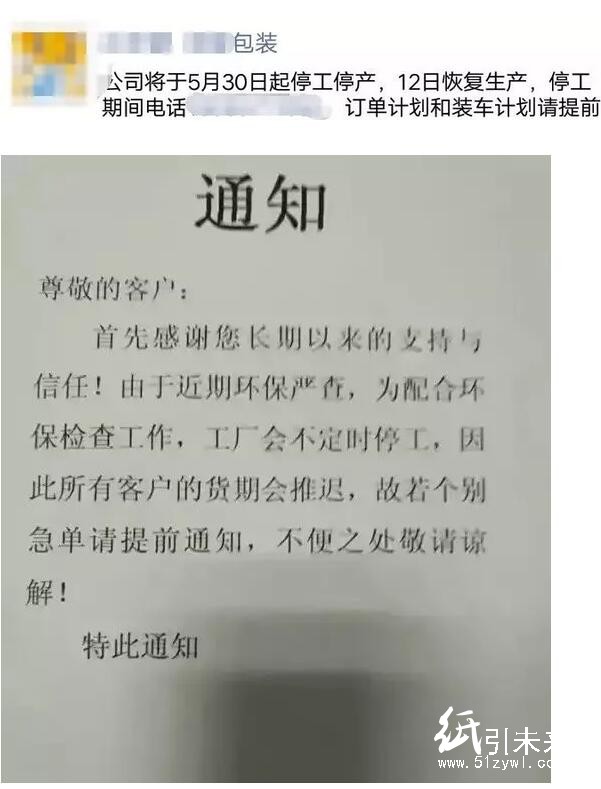 包装
公司将于5月30日起停工停产，12日恢复生产，停工
期间电话 订单计划和装车计划请提前
通知
尊敬的客户：
首先感谢您长期以来的支持与
信任！由于近期环保严查，为配合环
保检查工作，工厂会不定时停工，因
此所有客户的货期会推迟，故若个别
急单请提前通知，不便之处敬请谅
解！
特此通知
纸引未来
www.51zywl.com